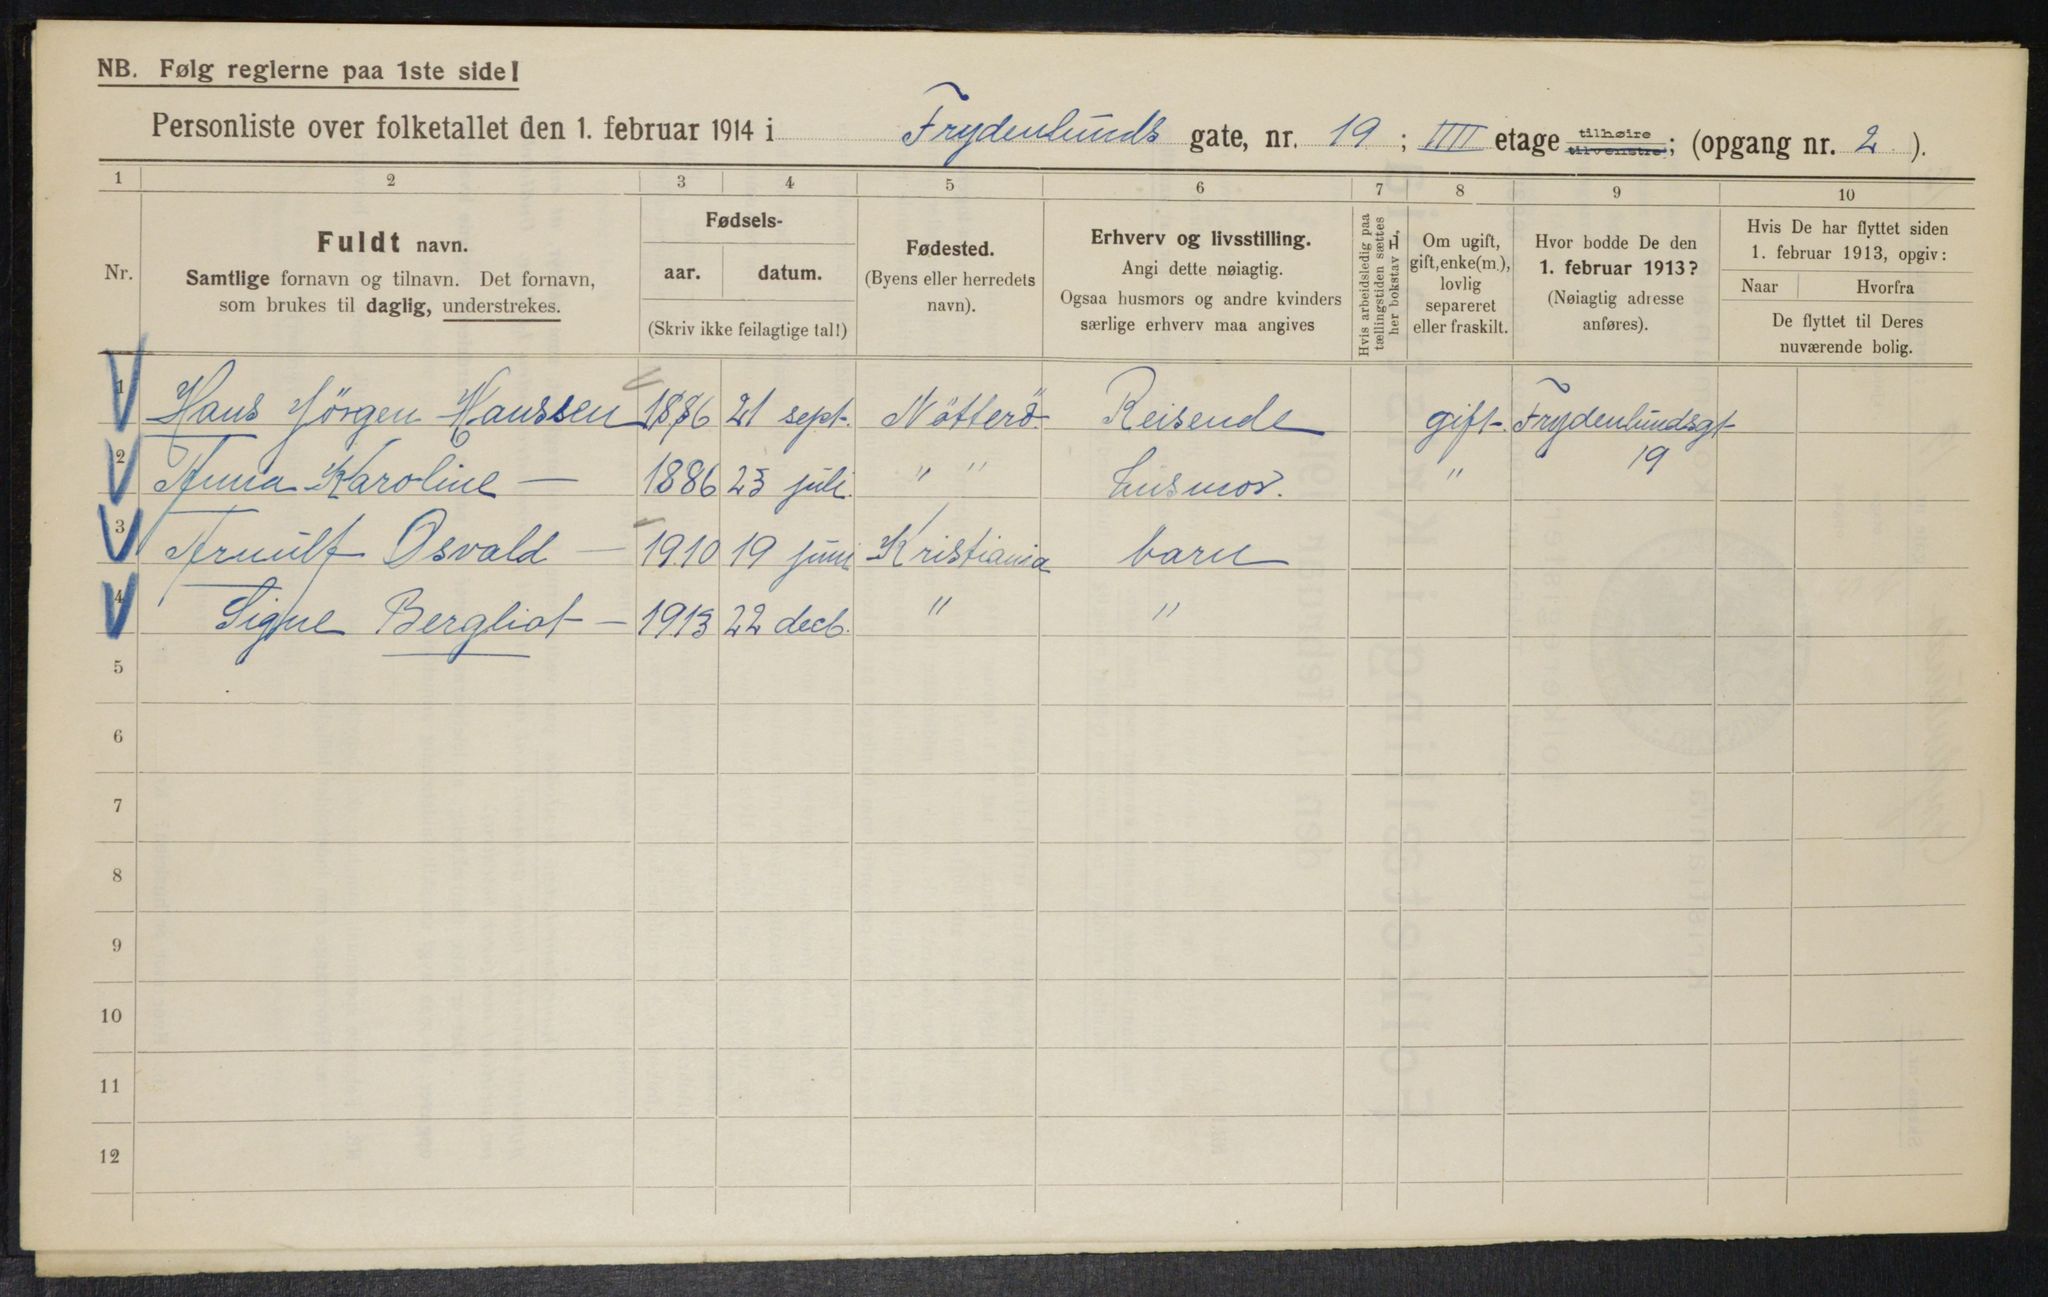 NB. Følg reglerne paa 1ste side!
Personliste over folketallet den 1. februar 1914 i Frydenlunds gate, nr. 19 ; IIII etage tilhøire tilvenstre; (opgang nr. 2 ).
1 2 3 4 5 6 7 8 9 10
Nr.
Fuldt navn.
Samtlige fornavn og tilnavn. Det fornavn,
som brukes til daglig, understrekes.
Fødsels-
aar. datum.
(Skriv ikke feilagtige tal!)
Fødested.
(Byens eller herredets
navn).
Erhverv og livsstilling.
Angi dette nøiagtig.
Ogsaa husmors og andre kvinders
særlige erhverv maa angives
Hvis arbeidsledig paa
tællingstiden sættes
her bokstav L,
Om ugift,
gift, enke(m.),
lovlig
separeret
eller fraskilt.
Hvor bodde De den
1. februar 1913?
(Nøiagtig adresse
anføres).
Hvis De har flyttet siden
1. februar 1913, opgiv:
Naar Hvorfra
De flyttet til Deres
nuværende bolig.
1 Hans Jörgen Hanssen 1886 21 sept. Nötterö Reisende gift. Frydenlundsgt
2 Anna Karoline — 1886 23 juli. " " husmor. " 19
3 Arnulf Osvald — 1910 19 juni Kristiania barn
4 Signe Bergliot — 1913 22 decb. " "
5
6
7
8
9
10
11
12